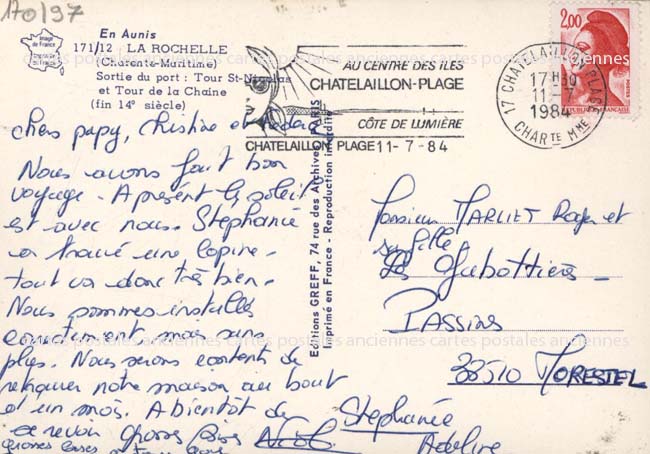 170197
Image de France
En Aunis
171/12 LA ROCHELLE
(Charente-Maritime)
Sortie du port : Tour St-Nicolas
et Tour de la Chaîne
(fin 14e siècle)
AU CENTRE DES ILES
CHATELAILLON-PLAGE
CÔTE DE LUMIÈRE
CHATELAILLON PLAGE 11- 7 - 84
17 CHATELAILLON PLAGE
17H30
11-7
1984
CHARTE MME
2,00
RÉPUBLIQUE FRANÇAISE
Chers papy, christine et
Nous avons fait bon
voyage. A présent le soleil
est avec nous. Stephanie
a trouvé une copine.
tout va donc très bien.
Nous sommes installés
correctement mais sans
plus. Nous serons contents de
retrouver notre maison au bout
et un mois. A bientôt de
se revoir grosses bises
Stephanie
Adeline
grosses bises
Editions GREFF, 74 rue des Archives - PARIS
Imprimé en France - Reproduction interdite
Monsieur MARLIET Roger et
sa fille
Les
PASSINS
38510 MORESTEL
cartes postales anciennes cartes postales anciennes cartes postales anciennes